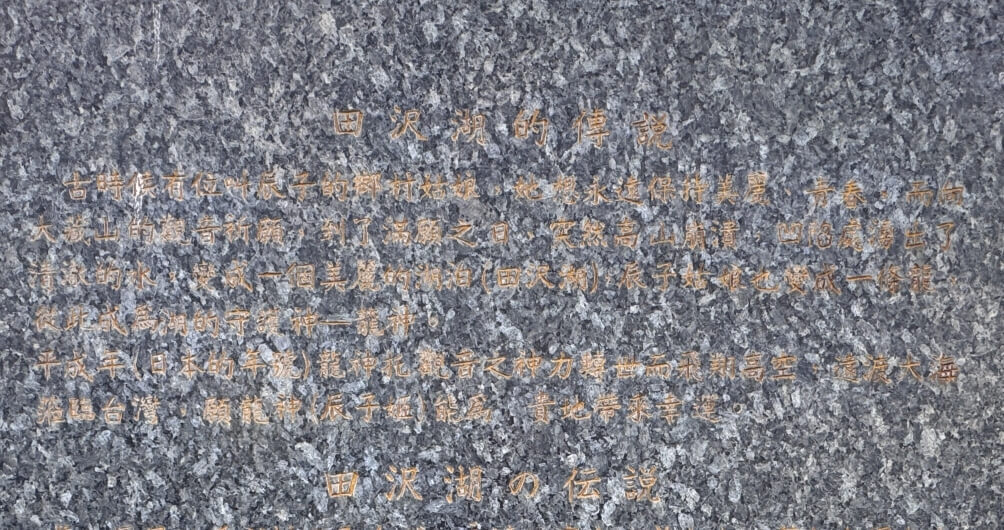 田沢湖的傳説
古時候有位叫辰子的鄉村姑娘，她想永遠保持美麗、青春，而向
大蔵山的觀音祈願，到了滿願之日，突然高山崩潰，凹陷處湧出了
清澈的水，變成一個美麗的湖泊(田沢湖)，辰子姑娘也變成一條龍，
從此成為湖的守護神—龍神。
平成年(日本的年號)龍神托觀音之神力轉世而飛翔高空，遠渡大海
飛臨台灣，願龍神(辰子姬)能為 貴地帶來幸運。
田沢湖の伝説